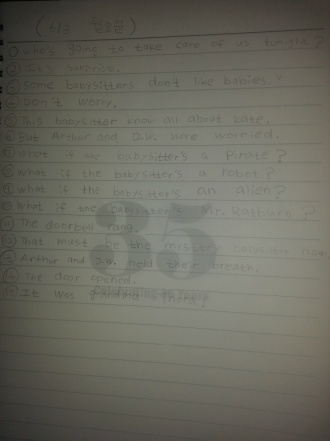 (6/3 월요일)
① Who's going to take care of us tonight?
② It's surprise.
③ Some babysitters don't like babies.
④ Don't worry.
⑤ This babysitter know all about kate.
⑥ But Arthur and D.W. were worried.
⑦ What if babysitter's a Pirate?
⑧ What if the babysitter's a robot?
⑨ What if the babysitter's an alien?
⑩ What if the babysitter's Mr. Ratburn?
⑪ The doorbell rang.
⑫ That must be the mystery babysitter now.
⑬ Arthur and D.W. held their breath.
⑭ The door opened.
⑮ It was grandma Thora!
85